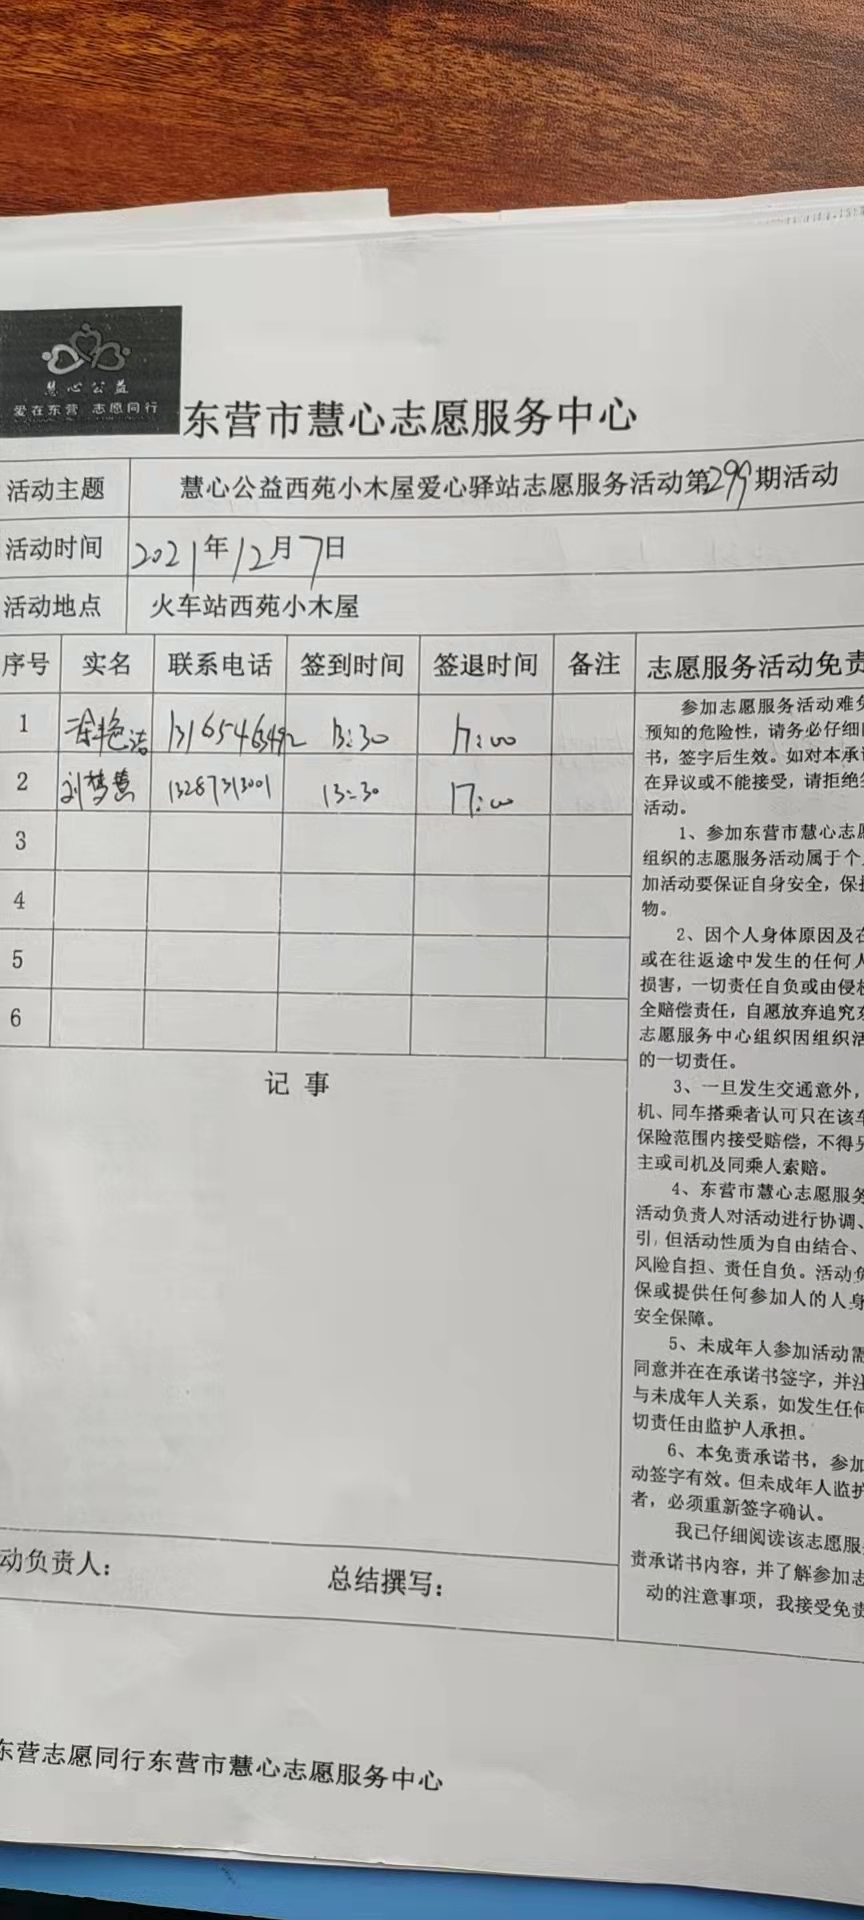 慧心公益
爱在东营 志愿同行
东营市慧心志愿服务中心
活动主题 慧心公益西苑小木屋爱心驿站志愿服务活动第299期活动
活动时间 2021年12月7日
活动地点 火车站西苑小木屋
序号 实名 联系电话 签到时间 签退时间 备注
1 涂艳洁 13165463492 13:30 17:00
2 刘梦慧 13287313001 13:30 17:00
3
4
5
6
记 事
动负责人： 总结撰写：
志愿服务活动免责
参加志愿服务活动难免
预知的危险性，请务必仔细阅
书，签字后生效。如对本承诺
在异议或不能接受，请拒绝签
活动。
1、参加东营市慧心志愿
组织的志愿服务活动属于个人
加活动要保证自身安全，保护
物。
2、因个人身体原因及在
或在往返途中发生的任何人
损害，一切责任自负或由侵权
全赔偿责任，自愿放弃追究东
志愿服务中心组织因组织活
的一切责任。
3、一旦发生交通意外，
机、同车搭乘者认可只在该车
保险范围内接受赔偿，不得另
主或司机及同乘人索赔。
4、东营市慧心志愿服务
活动负责人对活动进行协调、
引，但活动性质为自由结合、
风险自担、责任自负。活动负
保或提供任何参加人的人身
安全保障。
5、未成年人参加活动需
同意并在在承诺书签字，并注
与未成年人关系，如发生任何
切责任由监护人承担。
6、本免责承诺书，参加
动签字有效。但未成年人监护
者，必须重新签字确认。
我已仔细阅读该志愿服务
责承诺书内容，并了解参加志
动的注意事项，我接受免责
东营志愿同行东营市慧心志愿服务中心